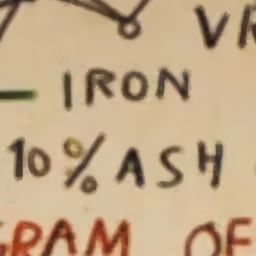 VR
IRON
10% ASH
GRAM OF